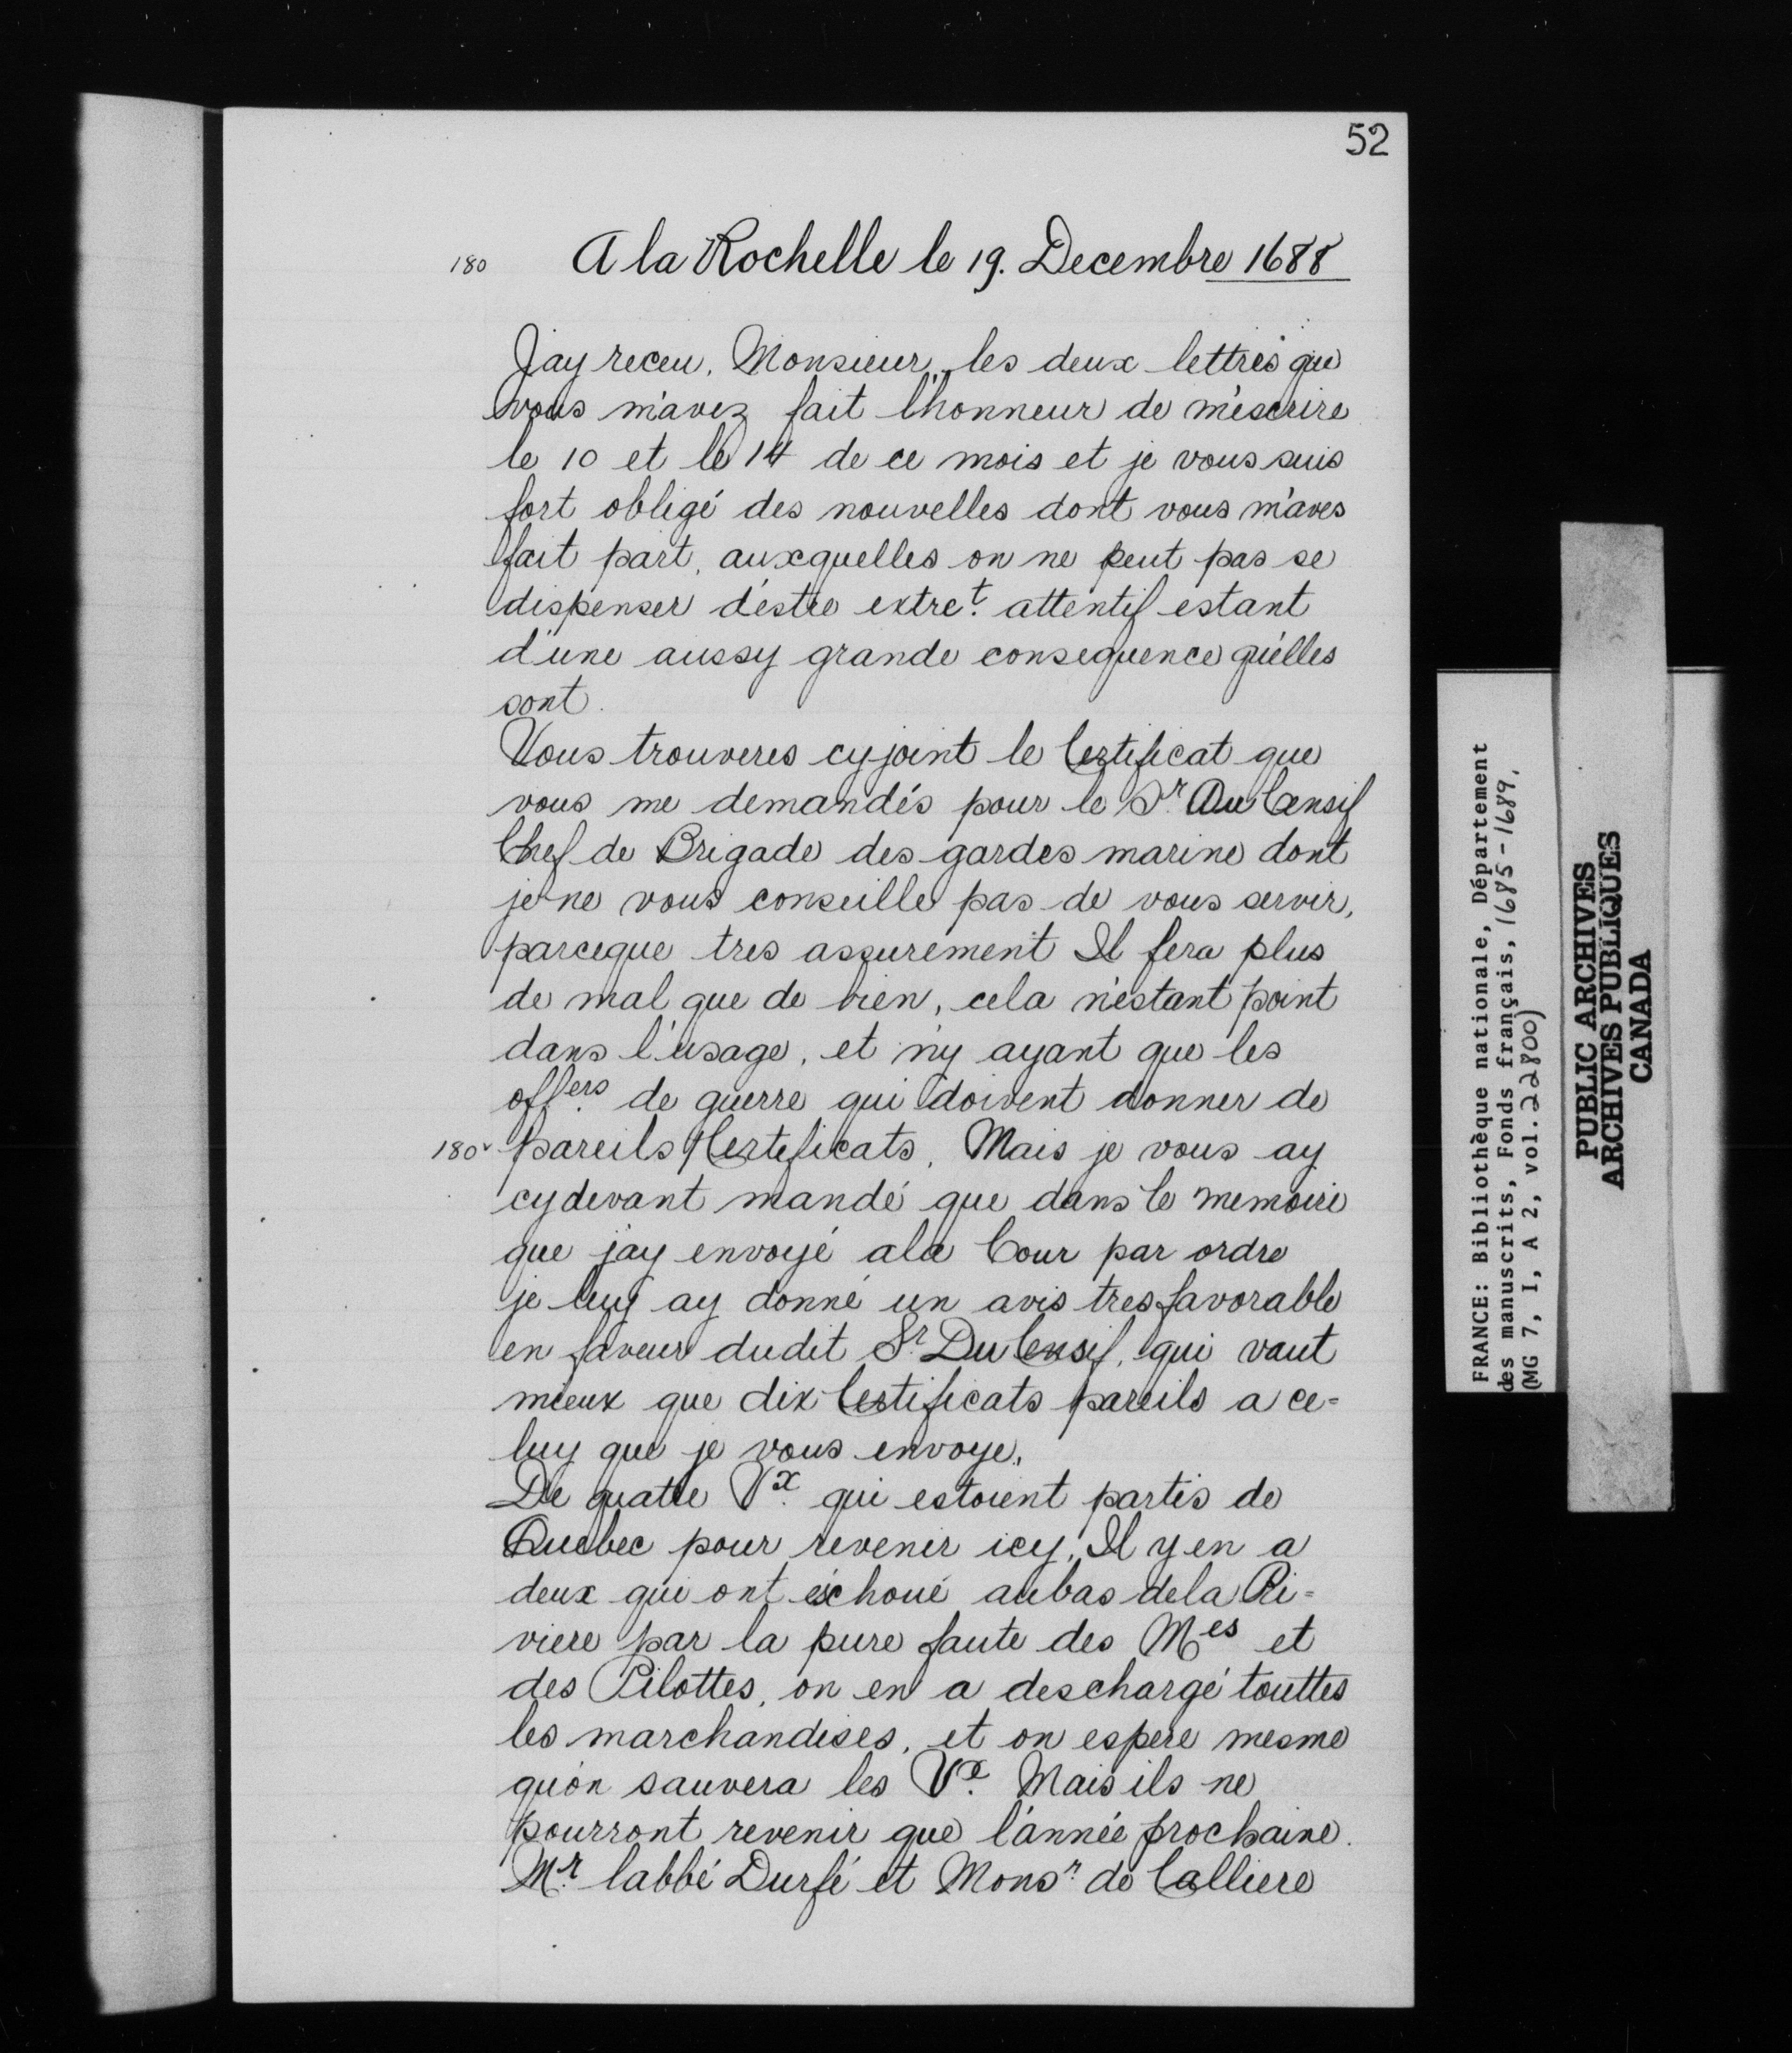 52
180 A la Rochelle le 19. Decembre 1688
Jay receu, Monsieur, les deux lettres que
vous m'avez fait l'honneur de m'escrire
le 10 et le 14 de ce mois et je vous suis
fort obligé des nouvelles dont vous m'aves
fait part, auxquelles on ne peut pas se
dispenser d'estre extre.t attentif estant
d'une aussy grande consequence qu'elles
sont.
Vous trouveres cy joint le Certificat que
vous me demandés pour le Sr. Du Censif
Chef de Brigade des gardes marine dont
je ne vous conseille pas de vous servir,
parceque tres assurement Il fera plus
de mal que de bien, cela n'estant point
dans l'usage, et n'y ayant que les
offers. de guerre qui doivent donner de
180v pareils Certificats. Mais je vous ay
cydevant mandé que dans le memoire
que j'ay envoyé a la Cour par ordre
je luy ay donné un avis tres favorable
en faveur dudit Sr. Du Censif, qui vaut
mieux que dix Certificats pareils a ce=
luy que je vous envoye.
De quatre Vx. qui estoient partis de
Quebec pour revenir icy, Il y en a
deux qui ont eschoué au bas de la Ri=
viere par la pure faute des Mes et
des Pilottes, on en a deschargé touttes
les marchandises, et on espere mesme
qu'on sauvera les Vx. Mais ils ne
pourront revenir que l'année prochaine.
Mr. labbé Durfé et Monsr. de Calliere
FRANCE: Bibliothèque nationale, Département
des manuscrits, Fonds français, 1685-1689.
(MG 7, I, A 2, vol. 22800)
PUBLIC ARCHIVES
ARCHIVES PUBLIQUES
CANADA